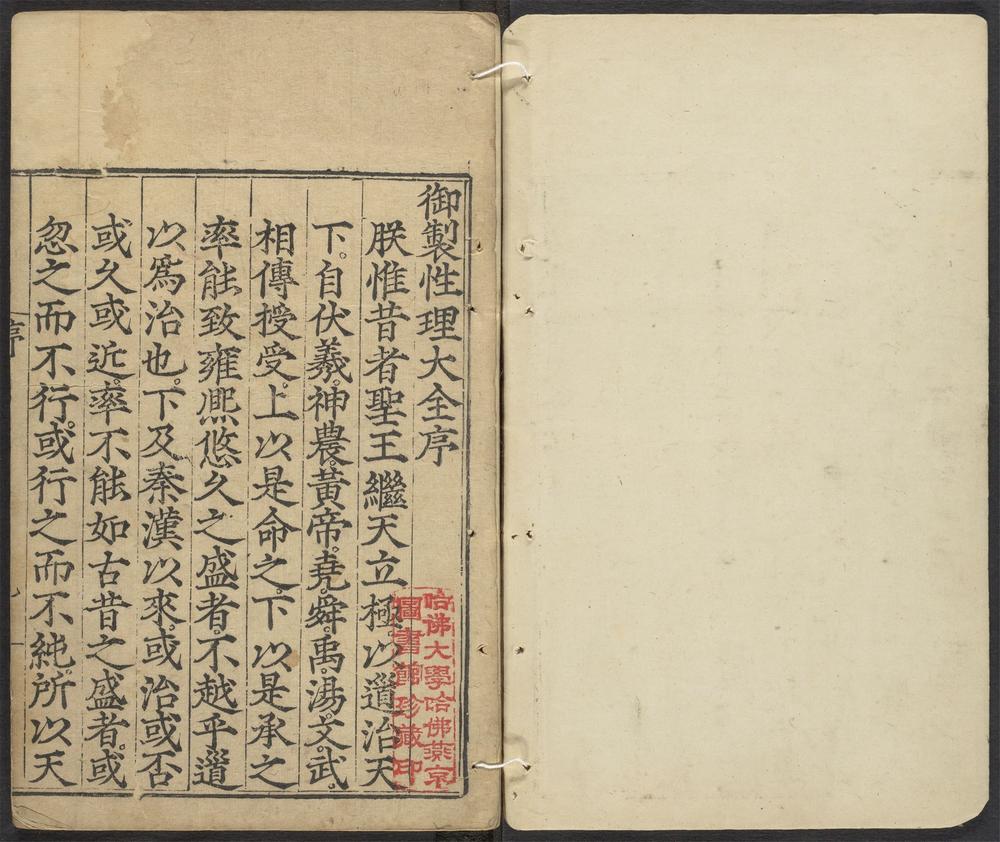 御製性理大全序
朕惟昔者聖王繼天立極以道治天
下。自伏羲。神農。黃帝。堯。舜。禹。湯。文。武。
相傳授受。上以是命之。下以是承之
率能致雍熈悠久之盛者。不越乎道
以爲治也。下及秦漢以來。或治或否
或久或近。率不能如古昔之盛者。或
忽之而不行。或行之而不純。所以天
序
哈佛大學哈佛燕京
圖書館珍藏印